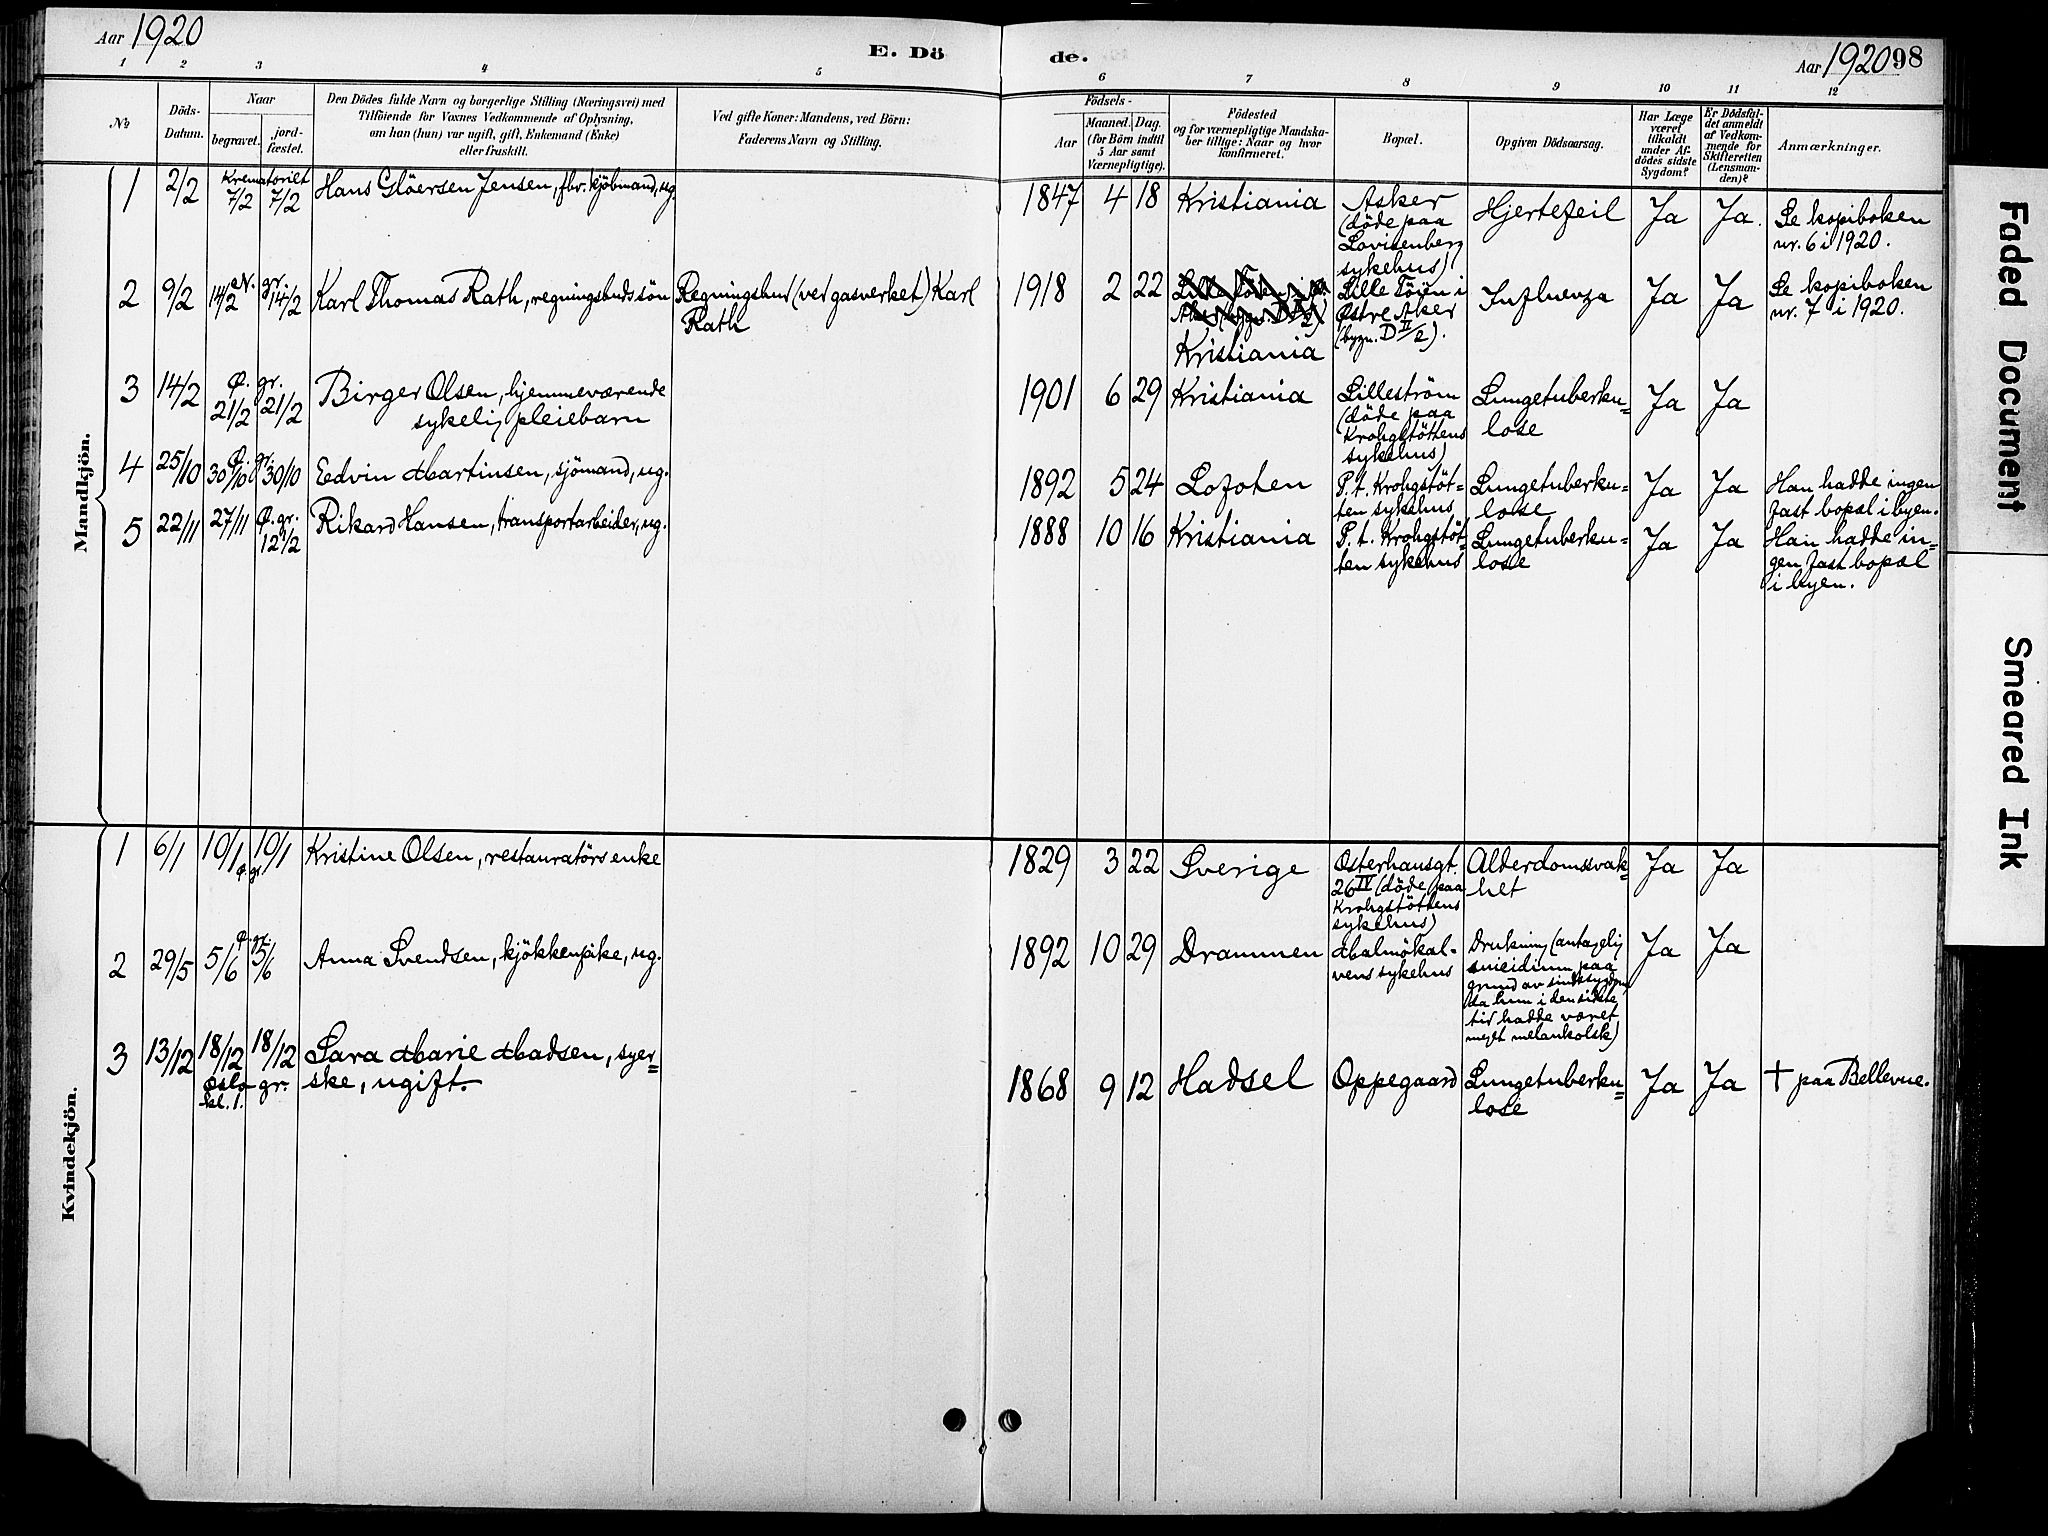 Aar 1920
E. Dö
de.
Aar 1920 98
1 2 3 4 5 6 7 8 9 10 11 12
No
Döds-
Datum.
Naar
begravet.
jord-
fæstet.
Den Dödes fulde Navn og borgerlige Stilling (Næringsvei) med
Tilföiende for Voxnes Vedkommende af Oplysning,
om han (hun) var ugift, gift, Enkemand (Enke)
eller fraskilt.
Ved gifte Koner: Mandens, ved Börn:
Faderens Navn og Stilling.
Födsels-
Aar
Maaned. Dag.
(for Börn indtil
5 Aar samt
Værnepligtige).
Födested
og for værnepligtige Mandska-
ber tillige: Naar og hvor
konfirmeret.
Bopæl.
Opgiven Dödsaarsag.
Har Læge
været
tilkaldt
under Af-
dödes sidste
Sygdom?
Er Dödsfal-
det anmeldt
af Vedkom-
mende for
Skifteretten
(Lensman-
den)?
Anmærkninger.
Mandkjön.
1 2/2
Krematoriet
7/2 7/2
Hans Glöersen Jensen, fhv. kjöbmand, ug.
1847 4 18 Kristiania
Asker
(döde paa
Lovisenberg
sykehus)
Hjertefeil Ja Ja.
Se kopiboken
nr. 6 i 1920.
2 9/2
N. gr.
14/2 14/2
Karl Thomas Rath, regningsbuds sön
Regningsbud (ved gasverket) Karl
Rath
1918 2 22
Kristiania
Lille Töyen i
Østre Aker
(bygn. D II/2).
Influenza Ja Ja
Se kopiboken
nr. 7 i 1920.
3 14/2
Ø. gr.
21/2 21/2
Birger Olsen, hjemmeværende
sykelig pleiebarn
1901 6 29 Kristiania
Lilleström
(döde paa
Krohgstöttens
sykehus)
Lungetuberku=
lose
Ja Ja
4 25/10
Ø. gr.
30/10 30/10
Edvin Martinsen, sjömand, ug.
1892 5 24 Lofoten
P. t. Krohgstöt=
ten sykehus
Lungetuberku=
lose
Ja Ja
Han hadde ingen
fast bopæl i byen.
5 22/11 27/11
Ø. gr.
12/2
Rikard Hansen, transportarbeider, ug.
1888 10 16 Kristiania
P. t. Krohgstöt=
ten sykehus
Lungetuberku=
lose
Ja Ja
Han hadde in=
gen fast bopæl
i byen.
Kvindekjön.
1 6/1 10/1 10/1
Ø. gr.
Kristine Olsen, restauratörs enke
1829 3 22 Sverige
Osterhausgt.
26 IV (döde paa
Krohgstöttens
sykehus)
Alderdomssvak=
het
Ja Ja
2 29/5
Ø. gr.
5/6 5/6
Anna Svendsen, kjökkenpike, ug.
1892 10 29 Drammen
Malmökal-
vens sykehus
Drukning (antagelig
suicidium paa
grund av sindssygdom,
da hun i den siste
tid hadde været
meget melankolsk)
Ja Ja
3 13/12 18/12 18/12
Oslo gr.
kl. 1.
Sara Marie Madsen, syer=
ske, ugift.
1868 9 12 Hadsel
Oppegaard
Lungetuberku=
lose
Ja Ja
† paa Bellevue.
Faded Document
Smeared Ink